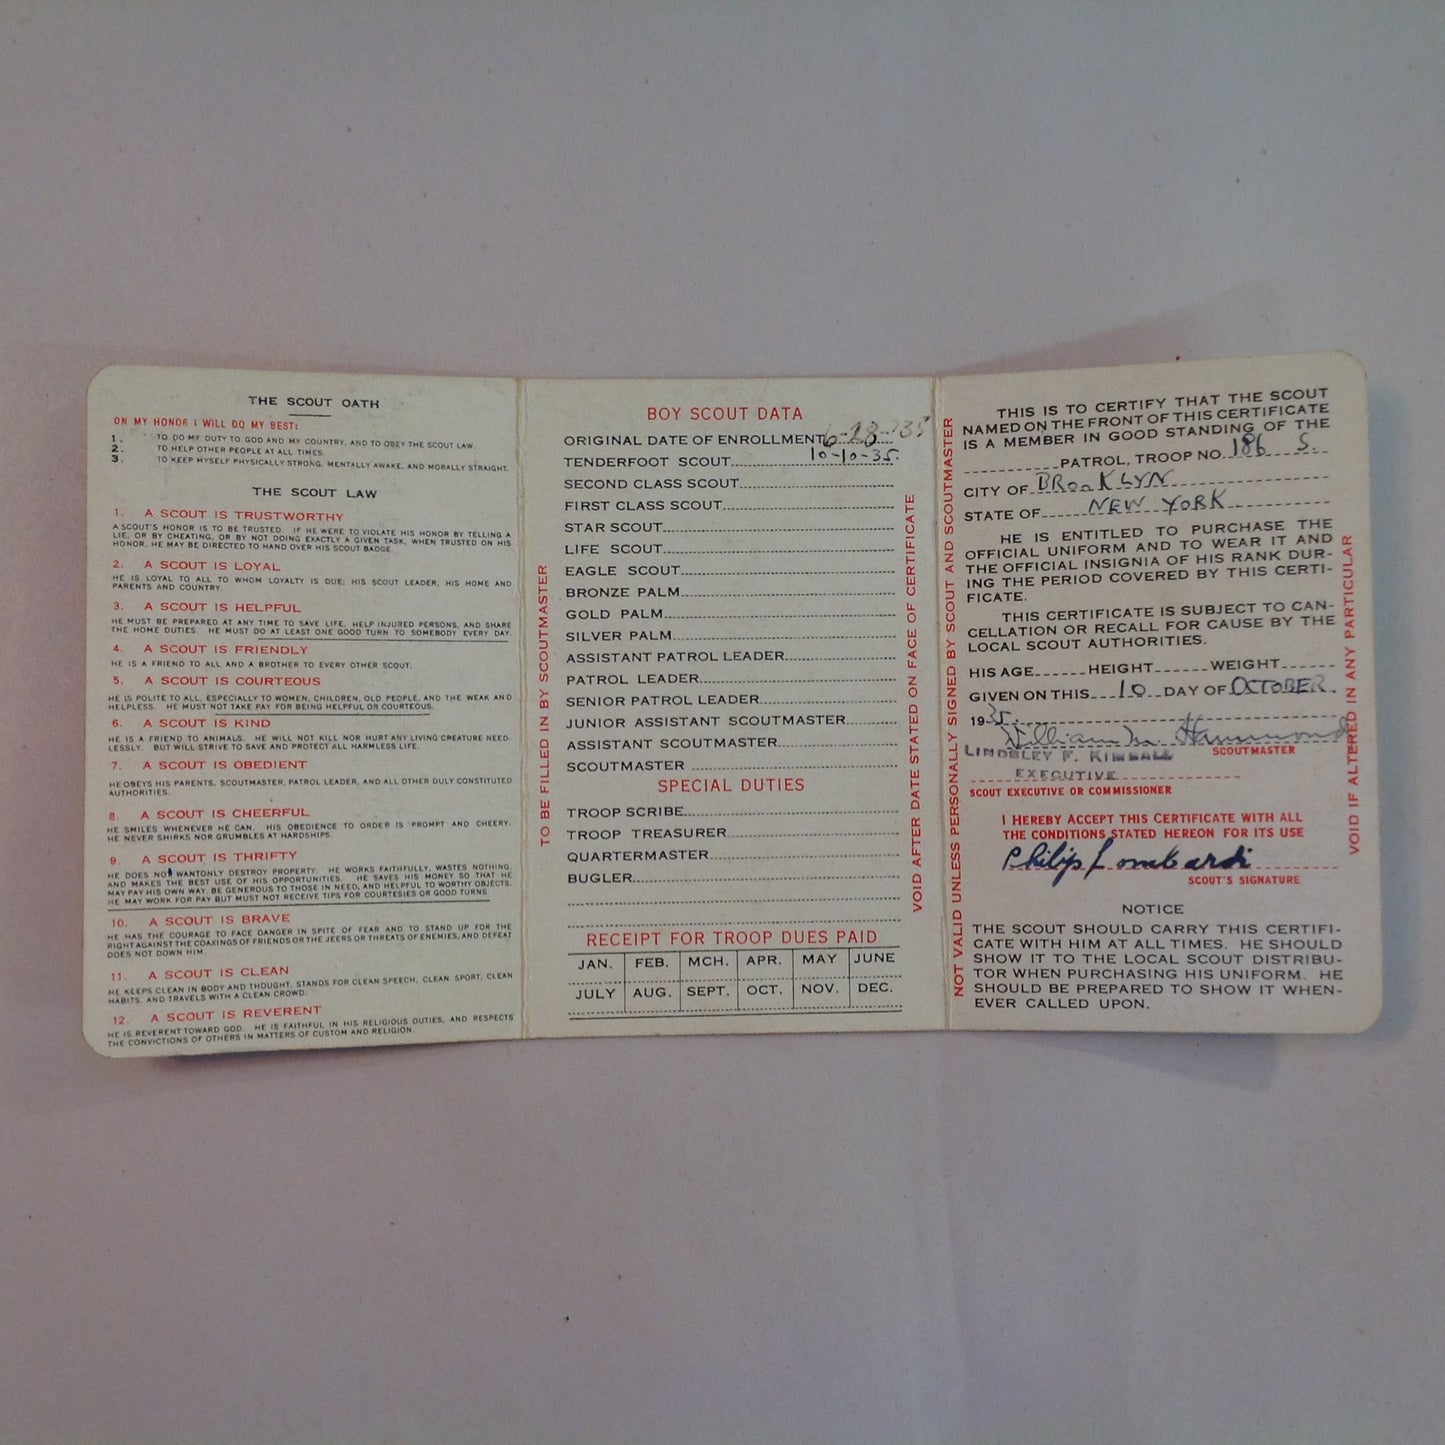 THE SCOUT OATH
ON MY HONOR I WILL DO MY BEST:
1. TO DO MY DUTY TO GOD AND MY COUNTRY, AND TO OBEY THE SCOUT LAW.
2. TO HELP OTHER PEOPLE AT ALL TIMES.
3. TO KEEP MYSELF PHYSICALLY STRONG, MENTALLY AWAKE, AND MORALLY STRAIGHT.
THE SCOUT LAW
1. A SCOUT IS TRUSTWORTHY
A SCOUT'S HONOR IS TO BE TRUSTED. IF HE WERE TO VIOLATE HIS HONOR BY TELLING A
LIE, OR BY CHEATING, OR BY NOT DOING EXACTLY A GIVEN TASK, WHEN TRUSTED ON HIS
HONOR, HE MAY BE DIRECTED TO HAND OVER HIS SCOUT BADGE.
2. A SCOUT IS LOYAL
HE IS LOYAL TO ALL TO WHOM LOYALTY IS DUE; HIS SCOUT LEADER, HIS HOME AND
PARENTS AND COUNTRY.
3. A SCOUT IS HELPFUL
HE MUST BE PREPARED AT ANY TIME TO SAVE LIFE, HELP INJURED PERSONS, AND SHARE
THE HOME DUTIES. HE MUST DO AT LEAST ONE GOOD TURN TO SOMEBODY EVERY DAY.
4. A SCOUT IS FRIENDLY
HE IS A FRIEND TO ALL AND A BROTHER TO EVERY OTHER SCOUT.
5. A SCOUT IS COURTEOUS
HE IS POLITE TO ALL, ESPECIALLY TO WOMEN, CHILDREN, OLD PEOPLE, AND THE WEAK AND
HELPLESS. HE MUST NOT TAKE PAY FOR BEING HELPFUL OR COURTEOUS.
6. A SCOUT IS KIND
HE IS A FRIEND TO ANIMALS. HE WILL NOT KILL NOR HURT ANY LIVING CREATURE NEED-
LESSLY. BUT WILL STRIVE TO SAVE AND PROTECT ALL HARMLESS LIFE.
7. A SCOUT IS OBEDIENT
HE OBEYS HIS PARENTS, SCOUTMASTER, PATROL LEADER, AND ALL OTHER DULY CONSTITUTED
AUTHORITIES.
8. A SCOUT IS CHEERFUL
HE SMILES WHENEVER HE CAN. HIS OBEDIENCE TO ORDER IS PROMPT AND CHEERY.
HE NEVER SHIRKS NOR GRUMBLES AT HARDSHIPS.
9. A SCOUT IS THRIFTY
HE DOES NOT WANTONLY DESTROY PROPERTY. HE WORKS FAITHFULLY, WASTES NOTHING,
AND MAKES THE BEST USE OF HIS OPPORTUNITIES. HE SAVES HIS MONEY SO THAT HE
MAY PAY HIS OWN WAY, BE GENEROUS TO THOSE IN NEED, AND HELPFUL TO WORTHY OBJECTS.
HE MAY WORK FOR PAY BUT MUST NOT RECEIVE TIPS FOR COURTESIES OR GOOD TURNS
10. A SCOUT IS BRAVE
HE HAS THE COURAGE TO FACE DANGER IN SPITE OF FEAR AND TO STAND UP FOR THE
RIGHT AGAINST THE COAXINGS OF FRIENDS OR THE JEERS OR THREATS OF ENEMIES, AND DEFEAT
DOES NOT DOWN HIM.
11. A SCOUT IS CLEAN
HE KEEPS CLEAN IN BODY AND THOUGHT, STANDS FOR CLEAN SPEECH, CLEAN SPORT, CLEAN
HABITS, AND TRAVELS WITH A CLEAN CROWD.
12. A SCOUT IS REVERENT
HE IS REVERENT TOWARD GOD. HE IS FAITHFUL IN HIS RELIGIOUS DUTIES, AND RESPECTS
THE CONVICTIONS OF OTHERS IN MATTERS OF CUSTOM AND RELIGION.
TO BE FILLED IN BY SCOUTMASTER
BOY SCOUT DATA
ORIGINAL DATE OF ENROLLMENT 6-28-'35
TENDERFOOT SCOUT 10-10-35.
SECOND CLASS SCOUT
FIRST CLASS SCOUT
STAR SCOUT
LIFE SCOUT
EAGLE SCOUT
BRONZE PALM
GOLD PALM
SILVER PALM
ASSISTANT PATROL LEADER
PATROL LEADER
SENIOR PATROL LEADER
JUNIOR ASSISTANT SCOUTMASTER
ASSISTANT SCOUTMASTER
SCOUTMASTER
SPECIAL DUTIES
TROOP SCRIBE
TROOP TREASURER
QUARTERMASTER
BUGLER
RECEIPT FOR TROOP DUES PAID
JAN. FEB. MCH. APR. MAY JUNE
JULY AUG. SEPT. OCT. NOV. DEC.
VOID AFTER DATE STATED ON FACE OF CERTIFICATE
NOT VALID UNLESS PERSONALLY SIGNED BY SCOUT AND SCOUTMASTER
THIS IS TO CERTIFY THAT THE SCOUT
NAMED ON THE FRONT OF THIS CERTIFICATE
IS A MEMBER IN GOOD STANDING OF THE
PATROL, TROOP NO. 186 S.
CITY OF BROOKLYN
STATE OF NEW YORK
HE IS ENTITLED TO PURCHASE THE
OFFICIAL UNIFORM AND TO WEAR IT AND
THE OFFICIAL INSIGNIA OF HIS RANK DUR-
ING THE PERIOD COVERED BY THIS CERTI-
FICATE.
THIS CERTIFICATE IS SUBJECT TO CAN-
CELLATION OR RECALL FOR CAUSE BY THE
LOCAL SCOUT AUTHORITIES.
HIS AGE HEIGHT WEIGHT
GIVEN ON THIS 10 DAY OF OCTOBER.
1935.
William M. Hammond
LINDSLEY F. KIMBALL SCOUTMASTER
EXECUTIVE
SCOUT EXECUTIVE OR COMMISSIONER
I HEREBY ACCEPT THIS CERTIFICATE WITH ALL
THE CONDITIONS STATED HEREON FOR ITS USE
Philip Lombardi
SCOUT'S SIGNATURE
NOTICE
THE SCOUT SHOULD CARRY THIS CERTIFI-
CATE WITH HIM AT ALL TIMES. HE SHOULD
SHOW IT TO THE LOCAL SCOUT DISTRIBU-
TOR WHEN PURCHASING HIS UNIFORM. HE
SHOULD BE PREPARED TO SHOW IT WHEN-
EVER CALLED UPON.
VOID IF ALTERED IN ANY PARTICULAR